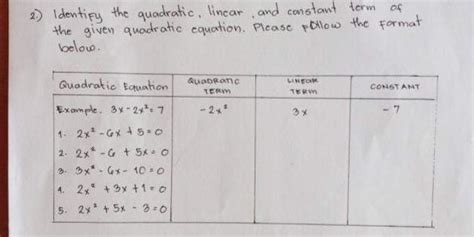 2) Identify the quadratic, linear, and constant term of
the given quadratic equation. Please follow the format
below.
Quadratic Equation | QUADRATIC TERM | LINEAR TERM | CONSTANT
Example. 3x - 2x² = 7 | - 2x² | 3x | - 7
1. 2x² - 6x + 5 = 0
2. 2x² - 6 + 5x = 0
3. 3x² - 6x - 10 = 0
4. 2x² + 3x + 1 = 0
5. 2x² + 5x - 3 = 0